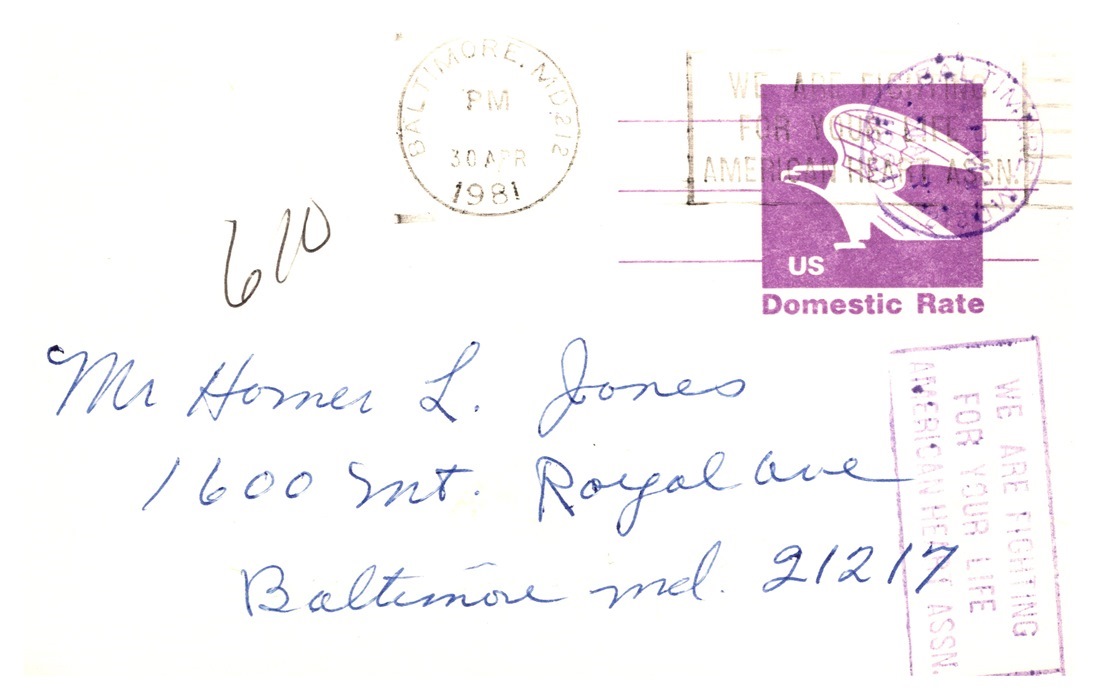 BALTIMORE, MD 212
PM
30 APR
1981
WE ARE FIGHTING
FOR YOUR LIFE
AMERICAN HEART ASSN.
US
Domestic Rate
610
Mr Homer L. Jones
1600 Mt. Royal Ave
Baltimore Md. 21217
WE ARE FIGHTING
FOR YOUR LIFE
AMERICAN HEART ASSN.